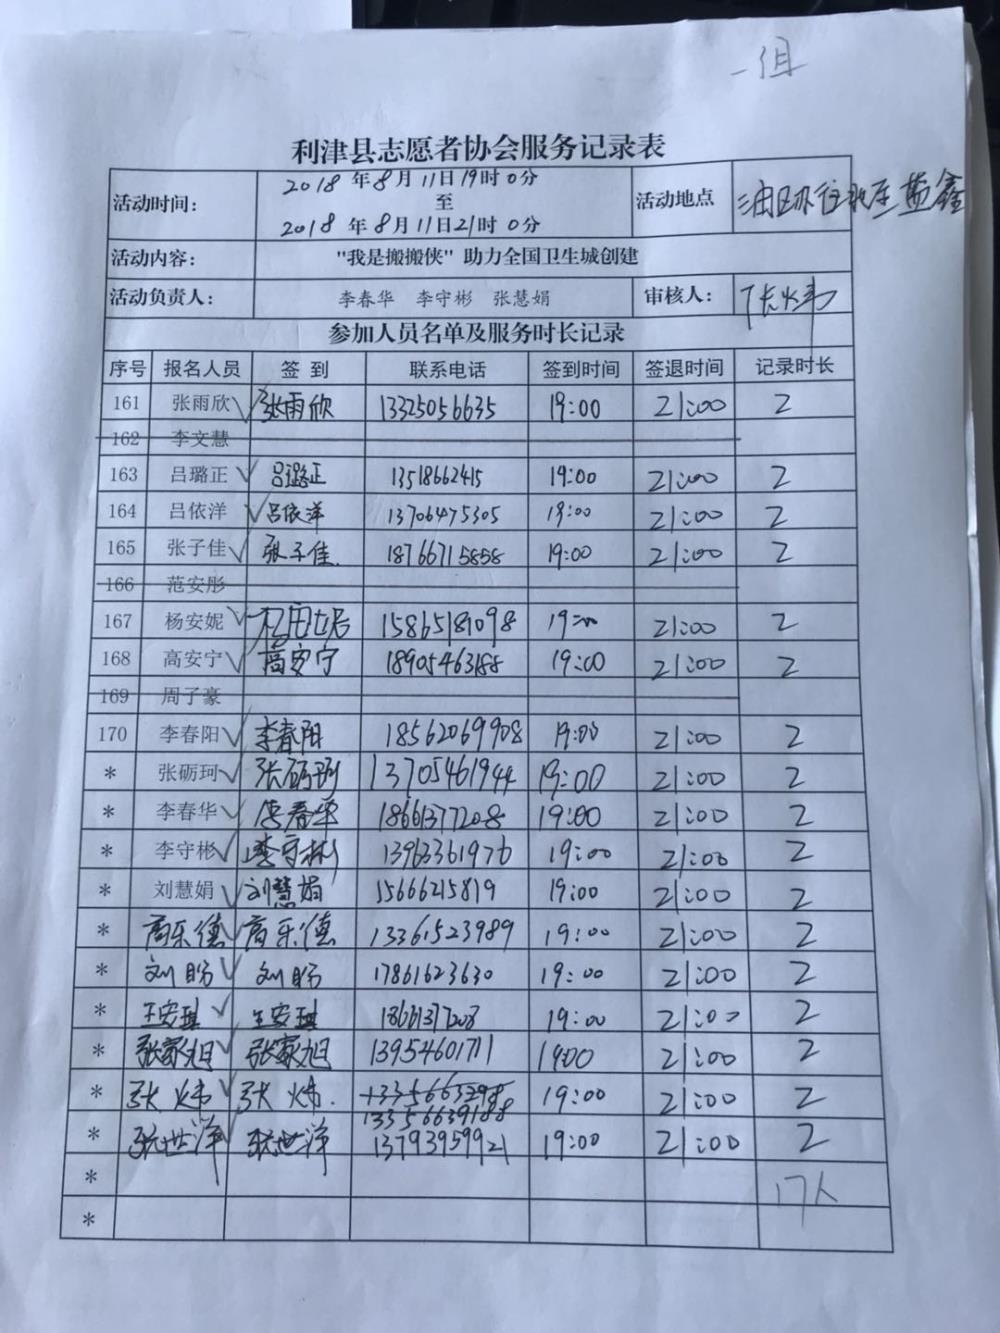 一组
利津县志愿者协会服务记录表
活动时间: 2018年8月11日19时0分 至 2018年8月11日21时0分 活动地点
活动内容: "我是搬搬侠" 助力全国卫生城创建
活动负责人: 李春华 李守彬 张慧娟 审核人: 张炜
参加人员名单及服务时长记录
序号 报名人员 签 到 联系电话 签到时间 签退时间 记录时长
161 张雨欣 张雨欣 13325056635 19:00 21:00 2
162 李文慧
163 吕璐正 吕璐正 13518662415 19:00 21:00 2
164 吕依洋 吕依洋 13706475305 19:00 21:00 2
165 张子佳 张子佳 18766715858 19:00 21:00 2
166 范安彤
167 杨安妮 15865181098 19:00 21:00 2
168 高安宁 高安宁 18905463188 19:00 21:00 2
169 周子豪
170 李春阳 李春阳 18562069908 19:00 21:00 2
* 张砺珂 张砺珂 13705461944 19:00 21:00 2
* 李春华 李春华 18661377208 19:00 21:00 2
* 李守彬 李守彬 13963361976 19:00 21:00 2
* 刘慧娟 刘慧娟 15666215819 19:00 21:00 2
* 商乐德 商乐德 13361523989 19:00 21:00 2
* 刘昉 刘昉 17861623630 19:00 21:00 2
* 王安琪 王安琪 18661377208 19:00 21:00 2
* 张家旭 张家旭 13954601711 19:00 21:00 2
* 张炜 张炜. 19:00 21:00 2
13356639188
* 张世泽 张世泽 13793959921 19:00 21:00 2
* 17人
*